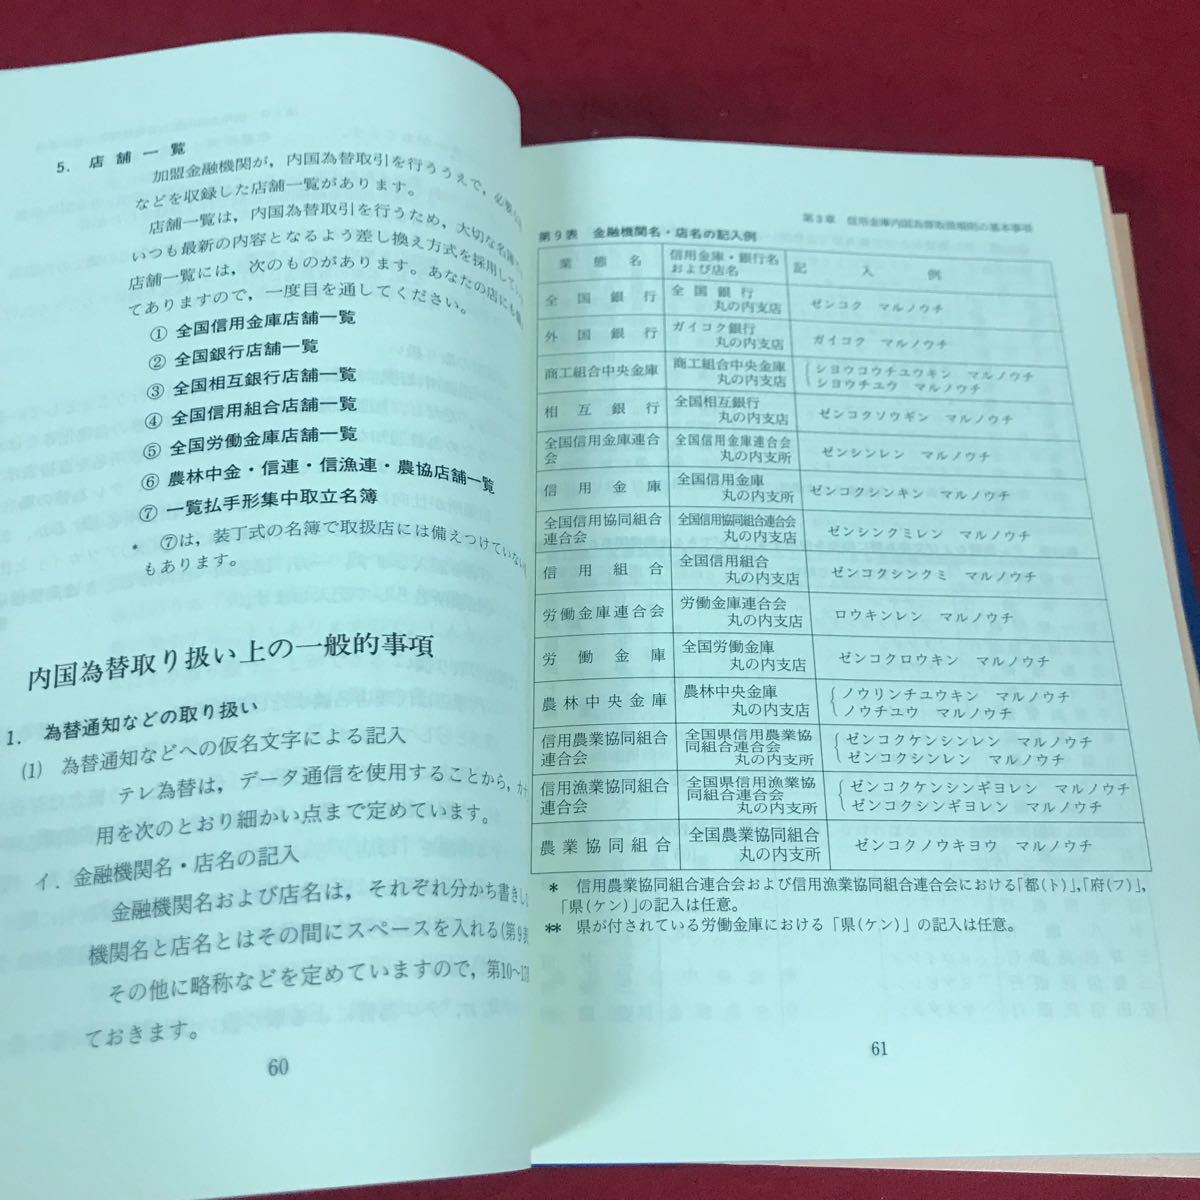 5. 店舗一覧
加盟金融機関が，内国為替取引を行ううえで，必要
などを収録した店舗一覧があります。
店舗一覧は，内国為替取引を行うため，大切な名簿
いつも最新の内容となるよう差し換え方式を採用して
店舗一覧には，次のものがあります。あなたの店にも
てありますので，一度目を通してください。
① 全国信用金庫店舗一覧
② 全国銀行店舗一覧
③ 全国相互銀行店舗一覧
④ 全国信用組合店舗一覧
⑤ 全国労働金庫店舗一覧
⑥ 農林中金・信連・信漁連・農協店舗一覧
⑦ 一覧払手形集中取立名簿
* ⑦は，装丁式の名簿で取扱店には備えつけていない
もあります。
内国為替取り扱い上の一般的事項
1. 為替通知などの取り扱い
(1) 為替通知などへの仮名文字による記入
テレ為替は，データ通信を使用することから，カナ
用を次のとおり細かい点まで定めています。
イ．金融機関名・店名の記入
金融機関名および店名は，それぞれ分かち書きし
機関名と店名とはその間にスペースを入れる(第9表
その他に略称などを定めていますので，第10～
ておきます。
60
第3章 信用金庫内国為替取扱規則の基本事項
第9表 金融機関名・店名の記入例
業態名 信用金庫・銀行名および店名 記入例
全国銀行 全国銀行 丸の内支店 ゼンコク マルノウチ
外国銀行 ガイコク銀行 丸の内支店 ガイコク マルノウチ
商工組合中央金庫 商工組合中央金庫 丸の内支店 シヨウコウチユウキン マルノウチ
シヨウチユウ マルノウチ
相互銀行 全国相互銀行 丸の内支店 ゼンコクソウギン マルノウチ
全国信用金庫連合会 全国信用金庫連合会 丸の内支所 ゼンシンレン マルノウチ
信用金庫 全国信用金庫 丸の内支所 ゼンコクシンキン マルノウチ
全国信用協同組合連合会 全国信用協同組合連合会 丸の内支店 ゼンシンクミレン マルノウチ
信用組合 全国信用組合 丸の内支店 ゼンコクシンクミ マルノウチ
労働金庫連合会 労働金庫連合会 丸の内支店 ロウキンレン マルノウチ
労働金庫 全国労働金庫 丸の内支店 ゼンコクロウキン マルノウチ
農林中央金庫 農林中央金庫 丸の内支店 ノウリンチユウキン マルノウチ
ノウチユウ マルノウチ
信用農業協同組合連合会 全国県信用農業協同組合連合会 丸の内支所 ゼンコクケンシンレン マルノウチ
ゼンコクシンレン マルノウチ
信用漁業協同組合連合会 全国県信用漁業協同組合連合会 丸の内支所 ゼンコクケンシンギヨレン マルノウチ
ゼンコクシンギヨレン マルノウチ
農業協同組合 全国農業協同組合 丸の内支所 ゼンコクノウキヨウ マルノウチ
* 信用農業協同組合連合会および信用漁業協同組合連合会における「都(ト)」，「府(フ)」，
「県(ケン)」の記入は任意。
** 県が付されている労働金庫における「県(ケン)」の記入は任意。
61